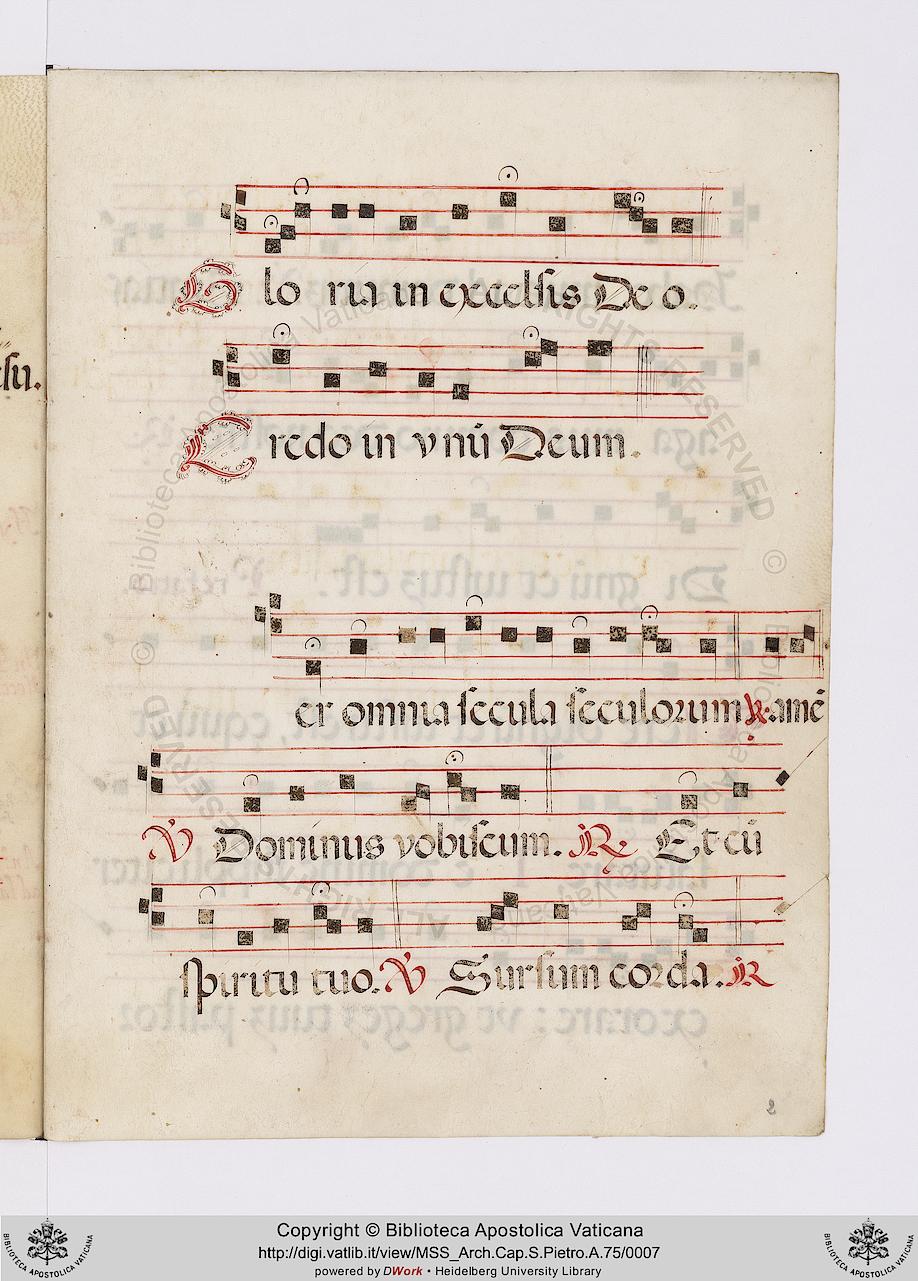 Gloria in excelsis Deo.
Credo in vnū Deum.
er omnia secula seculorum ℟. amē
℣ Dominus vobiscum. ℟ Et cū
spiritu tuo. ℣ Sursum corda. ℟
2
Copyright © Biblioteca Apostolica Vaticana
http://digi.vatlib.it/view/MSS_Arch.Cap.S.Pietro.A.75/0007
powered by DWork • Heidelberg University Library
BIBLIOTECA APOSTOLICA VATICANA
BIBLIOTECA APOSTOLICA VATICANA
© Biblioteca Apostolica Vaticana ALL RIGHTS RESERVED